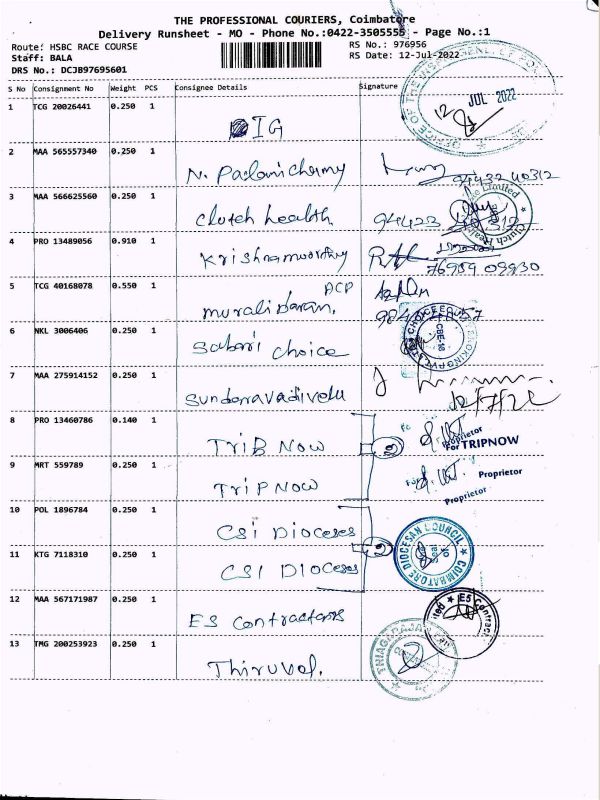 THE PROFESSIONAL COURIERS, Coimbatore
Delivery Runsheet - MO - Phone No.:0422-3505555 - Page No.:1
Route: HSBC RACE COURSE
RS No.: 976956
Staff: BALA
RS Date: 12-Jul-2022
DRS No.: DCJB97695601
S No Consignment No Weight PCS Consignee Details Signature
1 TCG 20026441 0.250 1
DIG
12 JUL 2022
2 MAA 565557340 0.250 1
N. Palanichamy
94432 40312
3 MAA 566625560 0.250 1
Clutch health
94423 40312
4 PRO 13489056 0.910 1
Krishnamoorthy
76959 09930
5 TCG 40168078 0.550 1
ACP
muralidaran.
6 NKL 3006406 0.250 1
Sabari choice
CBE-18
7 MAA 275914152 0.250 1
Sundaravadivelu
12/7/22
8 PRO 13460786 0.140 1
TriB Now
Proprietor
For TRIPNOW
9 MRT 559789 0.250 1
TriP Now
For
Proprietor
Proprietor
10 POL 1896784 0.250 1
CSI Dioceses
COIMBATORE DIOCESAN COUNCIL
11 KTG 7118310 0.250 1
CSI Dioceses
12 MAA 567171987 0.250 1
ES Contractors
ES Contract
13 TMG 200253923 0.250 1
Thiruval.